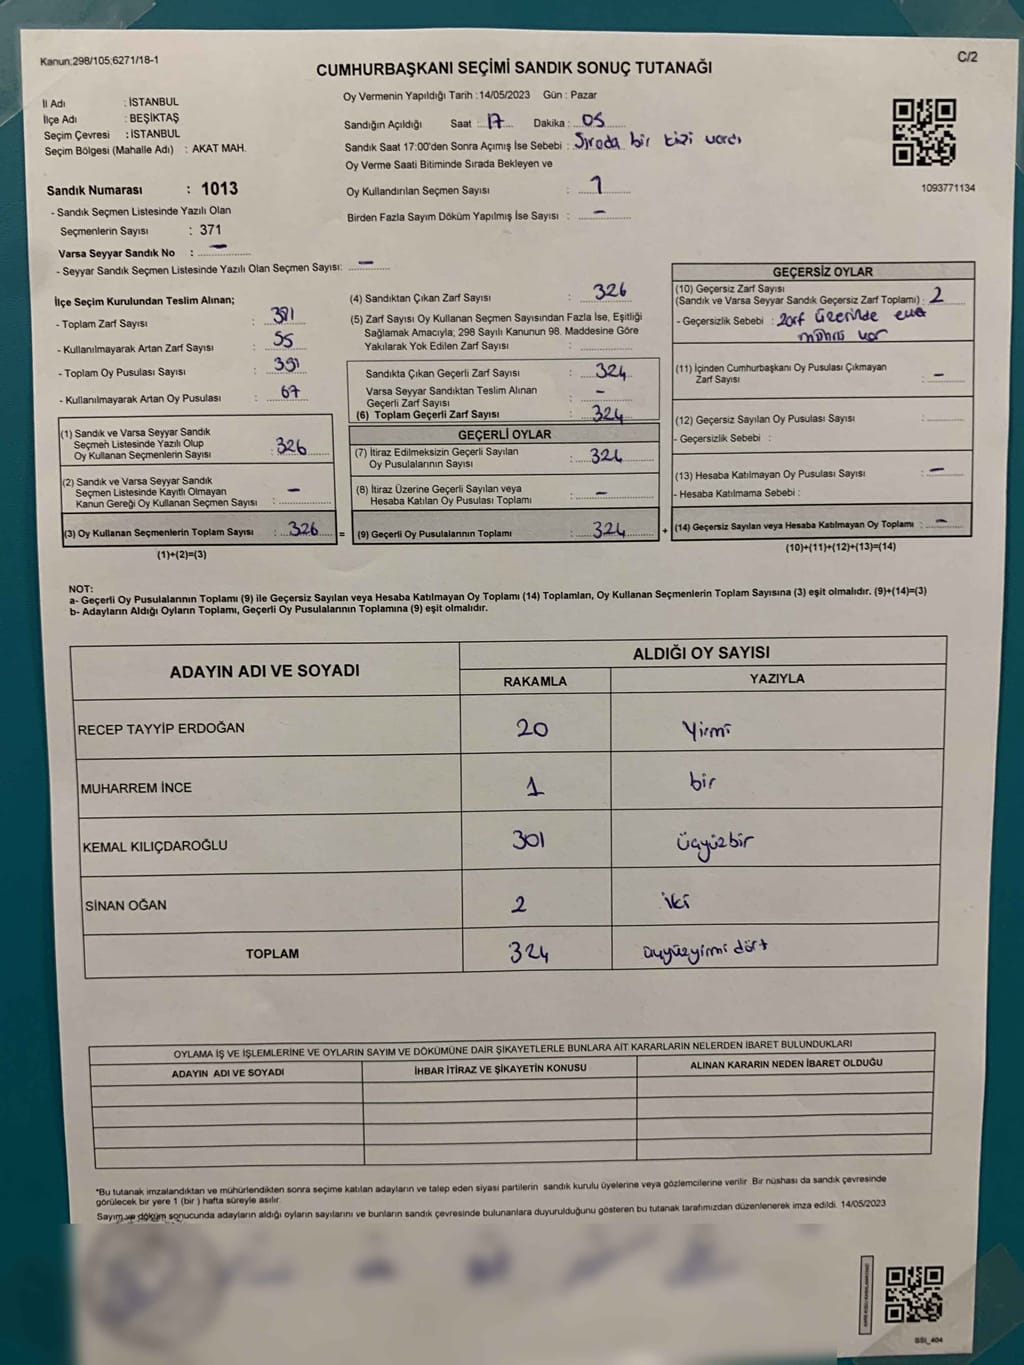 Kanun:298/105;6271/18-1
C/2
CUMHURBAŞKANI SEÇİMİ SANDIK SONUÇ TUTANAĞI
İl Adı : İSTANBUL
İlçe Adı : BEŞİKTAŞ
Seçim Çevresi : İSTANBUL
Seçim Bölgesi (Mahalle Adı) : AKAT MAH.
Oy Vermenin Yapıldığı Tarih :14/05/2023 Gün : Pazar
Sandığın Açıldığı Saat : 17 Dakika : 05
Sandık Saat 17:00'den Sonra Açılmış İse Sebebi : Sırada bir kişi vardı
Oy Verme Saati Bitiminde Sırada Bekleyen ve
Oy Kullandırılan Seçmen Sayısı : 1
Birden Fazla Sayım Döküm Yapılmış İse Sayısı : –
1093771134
Sandık Numarası : 1013
- Sandık Seçmen Listesinde Yazılı Olan
Seçmenlerin Sayısı : 371
Varsa Seyyar Sandık No : –
- Seyyar Sandık Seçmen Listesinde Yazılı Olan Seçmen Sayısı: –
İlçe Seçim Kurulundan Teslim Alınan;
- Toplam Zarf Sayısı : 381
- Kullanılmayarak Artan Zarf Sayısı : 55
- Toplam Oy Pusulası Sayısı : 391
- Kullanılmayarak Artan Oy Pusulası : 67
(1) Sandık ve Varsa Seyyar Sandık
Seçmen Listesinde Yazılı Olup
Oy Kullanan Seçmenlerin Sayısı : 326
(2) Sandık ve Varsa Seyyar Sandık
Seçmen Listesinde Kayıtlı Olmayan
Kanun Gereği Oy Kullanan Seçmen Sayısı : –
(3) Oy Kullanan Seçmenlerin Toplam Sayısı : 326 =
(1)+(2)=(3)
(4) Sandıktan Çıkan Zarf Sayısı : 326
(5) Zarf Sayısı Oy Kullanan Seçmen Sayısından Fazla İse, Eşitliği
Sağlamak Amacıyla; 298 Sayılı Kanunun 98. Maddesine Göre
Yakılarak Yok Edilen Zarf Sayısı :
Sandıkta Çıkan Geçerli Zarf Sayısı : 324
Varsa Seyyar Sandıktan Teslim Alınan
Geçerli Zarf Sayısı : –
(6) Toplam Geçerli Zarf Sayısı : 324
GEÇERLİ OYLAR
(7) İtiraz Edilmeksizin Geçerli Sayılan
Oy Pusulalarının Sayısı : 324
(8) İtiraz Üzerine Geçerli Sayılan veya
Hesaba Katılan Oy Pusulası Toplamı : –
(9) Geçerli Oy Pusulalarının Toplamı : 324 +
GEÇERSİZ OYLAR
(10) Geçersiz Zarf Sayısı
(Sandık ve Varsa Seyyar Sandık Geçersiz Zarf Toplamı) : 2
- Geçersizlik Sebebi : Zarf üzerinde evet
mührü var
(11) İçinden Cumhurbaşkanı Oy Pusulası Çıkmayan
Zarf Sayısı : –
(12) Geçersiz Sayılan Oy Pusulası Sayısı :
- Geçersizlik Sebebi :
(13) Hesaba Katılmayan Oy Pusulası Sayısı : –
- Hesaba Katılmama Sebebi :
(14) Geçersiz Sayılan veya Hesaba Katılmayan Oy Toplamı : –
(10)+(11)+(12)+(13)=(14)
NOT:
a- Geçerli Oy Pusulalarının Toplamı (9) ile Geçersiz Sayılan veya Hesaba Katılmayan Oy Toplamı (14) Toplamları, Oy Kullanan Seçmenlerin Toplam Sayısına (3) eşit olmalıdır. (9)+(14)=(3)
b- Adayların Aldığı Oyların Toplamı, Geçerli Oy Pusulalarının Toplamına (9) eşit olmalıdır.
ADAYIN ADI VE SOYADI
ALDIĞI OY SAYISI
RAKAMLA YAZIYLA
RECEP TAYYİP ERDOĞAN 20 Yirmi
MUHARREM İNCE 1 bir
KEMAL KILIÇDAROĞLU 301 üçyüzbir
SİNAN OĞAN 2 iki
TOPLAM 324 üçyüzyirmi dört
OYLAMA İŞ VE İŞLEMLERİNE VE OYLARIN SAYIM VE DÖKÜMÜNE DAİR ŞİKAYETLERLE BUNLARA AİT KARARLARIN NELERDEN İBARET BULUNDUKLARI
ADAYIN ADI VE SOYADI İHBAR İTİRAZ VE ŞİKAYETİN KONUSU ALINAN KARARIN NEDEN İBARET OLDUĞU
*Bu tutanak imzalandıktan ve mühürlendikten sonra seçime katılan adayların ve talep eden siyasi partilerin sandık kurulu üyelerine veya gözlemcilerine verilir. Bir nüshası da sandık çevresinde
görülecek bir yere 1 (bir ) hafta süreyle asılır.
Sayım ve döküm sonucunda adayların aldığı oyların sayılarını ve bunların sandık çevresinde bulunanlara duyurulduğunu gösteren bu tutanak tarafımızdan düzenlenerek imza edildi. 14/05/2023
SSI_404